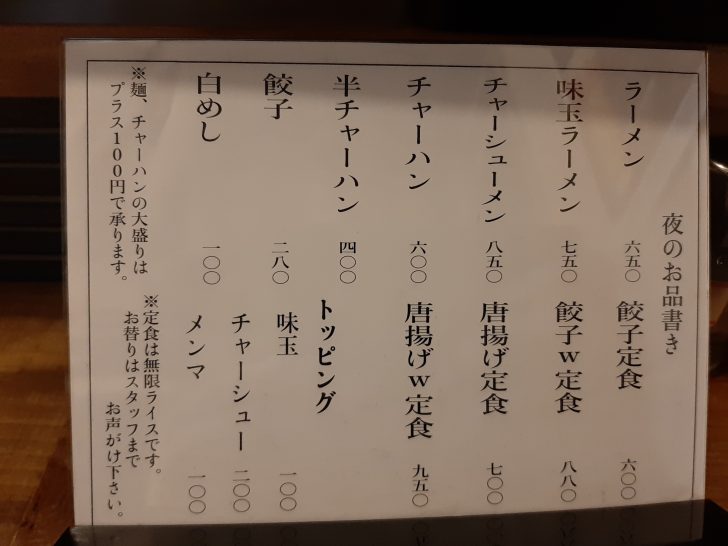 夜のお品書き
ラーメン 六五〇
味玉ラーメン 七五〇
チャーシューメン 八五〇
チャーハン 六〇〇
半チャーハン 四〇〇
餃子 二八〇
白めし 一〇〇
※麺、チャーハンの大盛りは
プラス100円で承ります。
餃子定食 六〇〇
餃子w定食 八八〇
唐揚げ定食 七〇〇
唐揚げw定食 九五〇
トッピング
味玉 一〇〇
チャーシュー 二〇〇
メンマ 一〇〇
※定食は無限ライスです。
お替りはスタッフまで
お声がけ下さい。